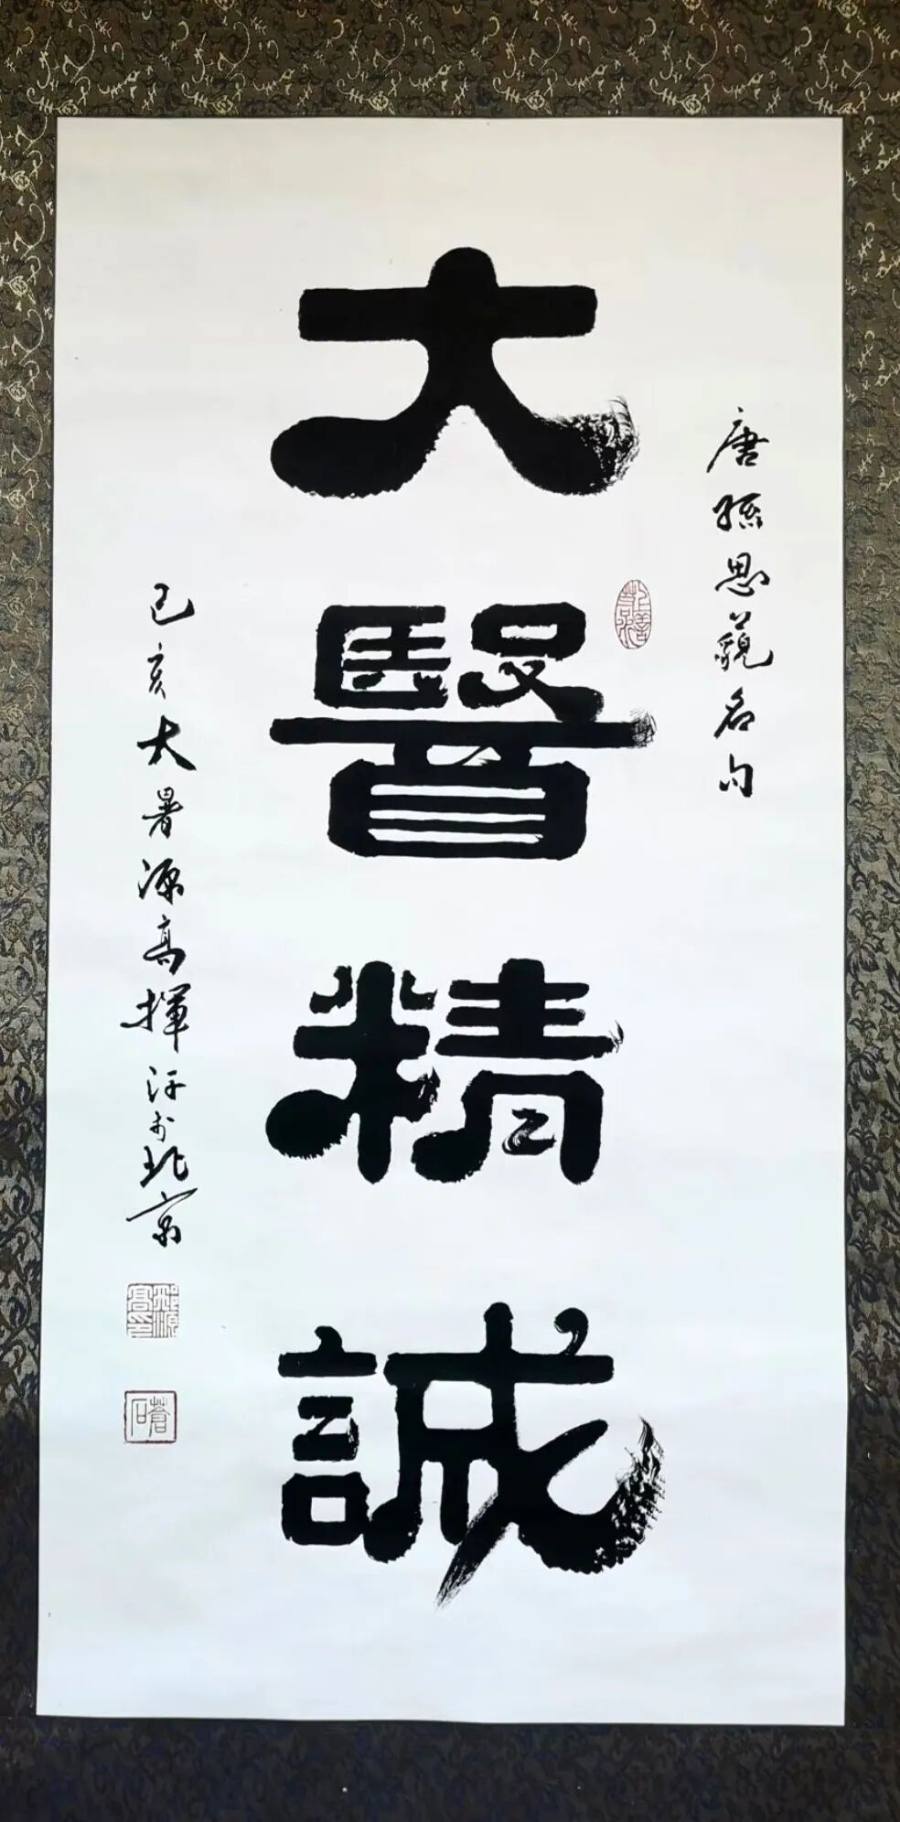 唐孫思藐名句
大醫精誠
己亥大暑源高揮汗於北京
蒼石